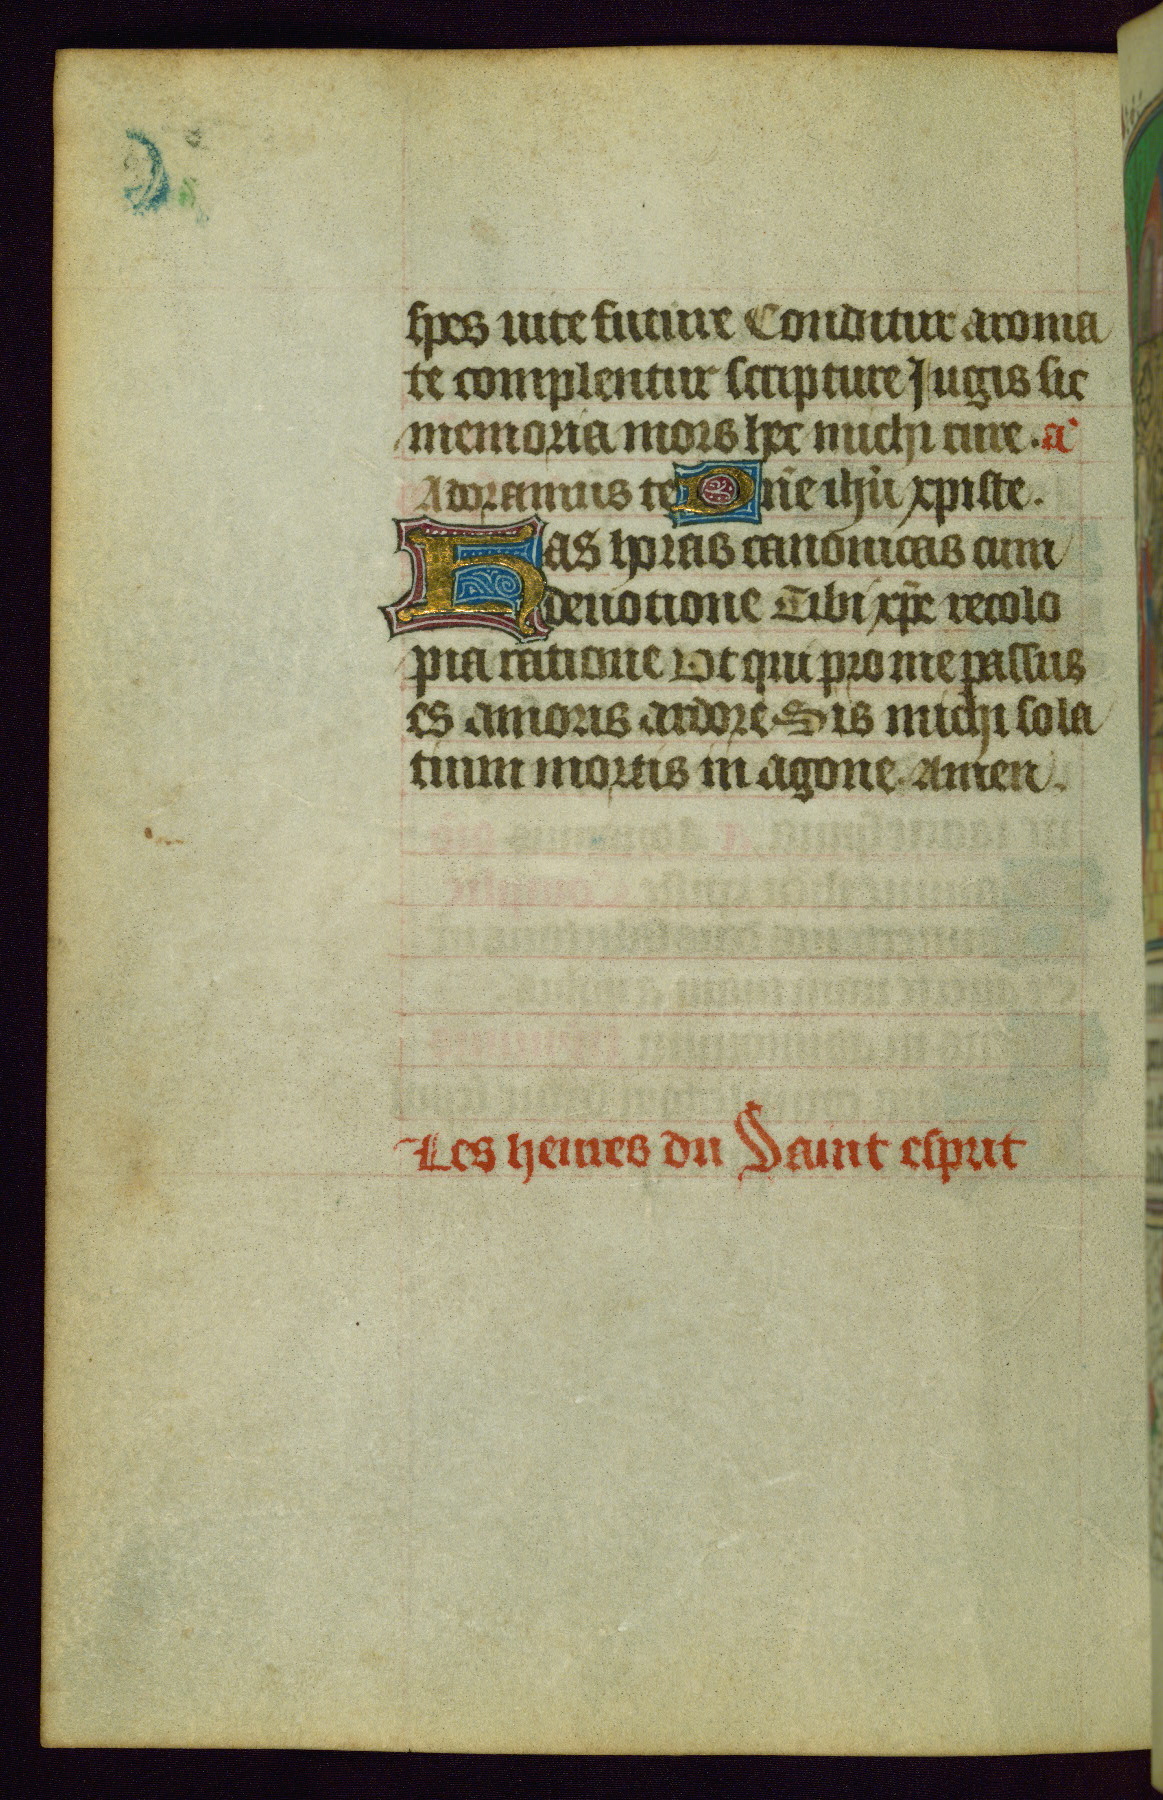 spes uite future Conditur aroma
te complentur scripture Jugis sic
memoria mors hec michi cure . a
Adoramus te Dn̄e ihū xpiste .
Has horas canonicas cum
deuotione Tibi xp̄e recolo
pia ratione Vt qui pro me passus
es amoris ardore Sis michi sola
tium mortis in agone. Amen.
Les heures du Saint esprit